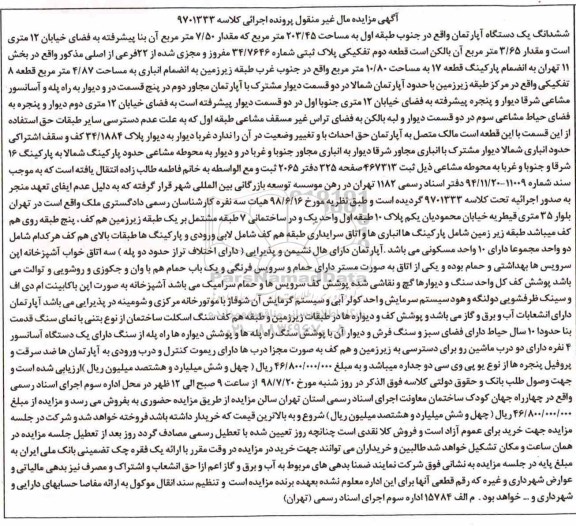 آگهی مزایده مال غیر منقول پرونده اجرائی کلاسه ۹۷۰۱۳۳۳
ششدانگ یک دستگاه آپارتمان واقع در جنوب طبقه اول به مساحت ۲۰۳/۴۵ متر مربع که مقدار ۷/۵۰ متر مربع آن بنا پیشرفته به فضای خیابان ۱۲ متری
است و مقدار ۳/۶۵ متر مربع آن بالکن است قطعه دوم تفکیکی پلاک ثبتی شماره ۳۴/۷۶۴۶ مفروز و مجزی شده از ۲۲ فرعی از اصلی مذکور واقع در بخش
۱۱ تهران به انضمام پارکینگ قطعه ۱۷ به مساحت ۱۰/۸۰ متر مربع واقع در جنوب غرب طبقه زیرزمین به انضمام انباری به مساحت ۴/۸۷ متر مربع قطعه ۸
تفکیکی واقع در مرکز طبقه زیرزمین با حدود آپارتمان شمالا در دو قسمت دیوار مشترک با آپارتمان مجاور دوم در پنج قسمت در و دیوار به راه پله و آسانسور
مشاعی شرقا دیوار و پنجره پیشرفته به فضای خیابان ۱۲ متری جنوبا اول در دو قسمت دیوار پیشرفته است به فضای خیابان ۱۲ متری دوم دیوار و پنجره به
فضای حیاط مشاعی سوم در دو قسمت دیوار و لبه بالکن به فضای تراس غیر مسقف مشاعی طبقه اول که به علت عدم دسترسی سایر طبقات حق استفاده
از این قسمت با این قطعه است مالک متصل به آپارتمان حق احداث بنا و تغییر وضعیت در آن را ندارد غربا دیوار به دیوار پلاک ۳۴/۱۸۸۴ کف و سقف اشتراکی
حدود انباری شمالا دیوار مشترک با انباری مجاور شرقا دیوار به انباری مجاور جنوبا و غربا در و دیوار به محوطه مشاعی حدود پارکینگ شمالا به پارکینگ ۱۶
شرقا و جنوبا و غربا به محوطه مشاعی ذیل ثبت ۴۶۷۳۱۳ صفحه ۳۲۵ دفتر ۲۰۶۵ ثبت و مع الواسطه به خانم فاطمه طالب زاده انتقال یافته است که به موجب
سند شماره ۱۱۰۰۹-۹۴/۱۱/۲۰ دفتر اسناد رسمی ۱۱۸۲ تهران در رهن موسسه توسعه بازرگانی بین المللی شهر قرار گرفته که به دلیل عدم ایفای تعهد منجر
به صدور اجرائیه تحت کلاسه ۹۷۰۱۳۳۳ گردیده است و طبق نظریه مورخ ۹۸/۶/۱۶ هیات سه نفره کارشناسان رسمی دادگستری ملک واقع است در تهران
بلوار ۳۵ متری قیطریه خیابان محمودیان یکم پلاک ۱۰ طبقه اول واحد یک و در ساختمانی ۷ طبقه مشتمل بر یک طبقه زیرزمین هم کف، پنج طبقه روی هم
کف میباشد طبقه زیر زمین شامل پارکینگ ها انباری ها و اتاق سرایداری طبقه هم کف شامل لابی ورودی و پارکینگ ها طبقات بالای هم کف هر کدام شامل
دو واحد مجموعا دارای ۱۰ واحد مسکونی می باشد .آپارتمان دارای هال نشیمن و پذیرایی ( دارای اختلاف تراز حدود دو پله ) سه اتاق خواب آشپزخانه اپن
سرویس ها بهداشتی و حمام بوده و یکی از اتاق به صورت مستر دارای حمام و سرویس فرنگی و یک باب حمام هم با وان و جکوزی و روشویی و توالت می
باشد پوشش کف کل واحد سنگ و دیوارها گچ و نقاشی شده پوشش کف سرویس ها و حمام سرامیک می باشد آشپزخانه به صورت اپن با کابینت ام دی اف
و سینک ظرفشویی دولنگه و هود سیستم سرمایش واحد کولر آبی و سیستم گرمایش آن شوفاژ با موتورخانه مرکزی و شومینه در پذیرایی می باشد آپارتمان
دارای انشعابات آب و برق و گاز می باشد و پوشش کف و دیواره ها در طبقات زیرزمین و طبقه هم کف سنگ اسکلت ساختمان از نوع بتنی با نمای سنگ قدمت
بنا حدودا ۱۰ سال حیاط دارای فضای سبز و سنگ فرش و دیوار آن با پوشش سنگ راه پله ها و پوشش دیواره ها راه پله از سنگ دارای یک دستگاه آسانسور
۴ نفره دارای دو درب ماشین رو برای دسترسی به زیرزمین و هم کف به صورت مجزا درب ها دارای ریموت کنترل و درب ورودی به آپارتمان ها ضد سرقت و
پروفیل پنجره ها از نوع یو پی وی سی دو جداره میباشد و به مبلغ ۴۶/۸۰۰/۰۰۰/۰۰۰ ریال ( چهل و شش میلیارد و هشتصد میلیون ریال )ارزیابی شده است و
جهت وصول طلب بانک و حقوق دولتی کلاسه فوق الذکر در روز شنبه مورخ ۹۸/۷/۲۰ از ساعت ۹ صبح الی ۱۲ ظهر در محل اداره سوم اجرای اسناد رسمی
واقع در چهارراه جهان کودک ساختمان معاونت اجرای اسناد رسمی استان تهران سالن مزایده از طریق مزایده حضوری به فروش می رسد و مزایده از مبلغ
۴۶/۸۰۰/۰۰۰/۰۰۰ ریال ( چهل و شش میلیارد و هشتصد میلیون ریال) شروع و به بالاترین قیمت که خریدار داشته باشد فروخته خواهد شد و شرکت در جلسه
مزایده جهت خرید برای عموم آزاد است و فروش کلا نقدی است چنانچه روز تعیین شده با تعطیل رسمی مصادف گردد روز بعد از تعطیل جلسه مزایده در
همان ساعت و مکان تشکیل خواهد شد طالبین و خریداران می توانند جهت خرید در مزایده در وقت مقرر با ارائه یک فقره چک تضمینی بانک ملی ایران به
مبلغ پایه در جلسه مزایده به نشانی فوق شرکت نمایند ضمنا بدهی های مربوط به آب و برق و گاز اعم از حق انشعاب و اشتراک و مصرف نیز بدهی مالیاتی و
عوارض شهرداری و غیره که رقم قطعی آنها برای این اداره معلوم نشده بعهده برنده مزایده است و تنظیم سند انقال موکول به ارائه مفاصا حسابهای دارایی و
شهرداری و ... خواهد بود . م الف ۱۵۷۸۴ اداره سوم اجرای اسناد رسمی (تهران)